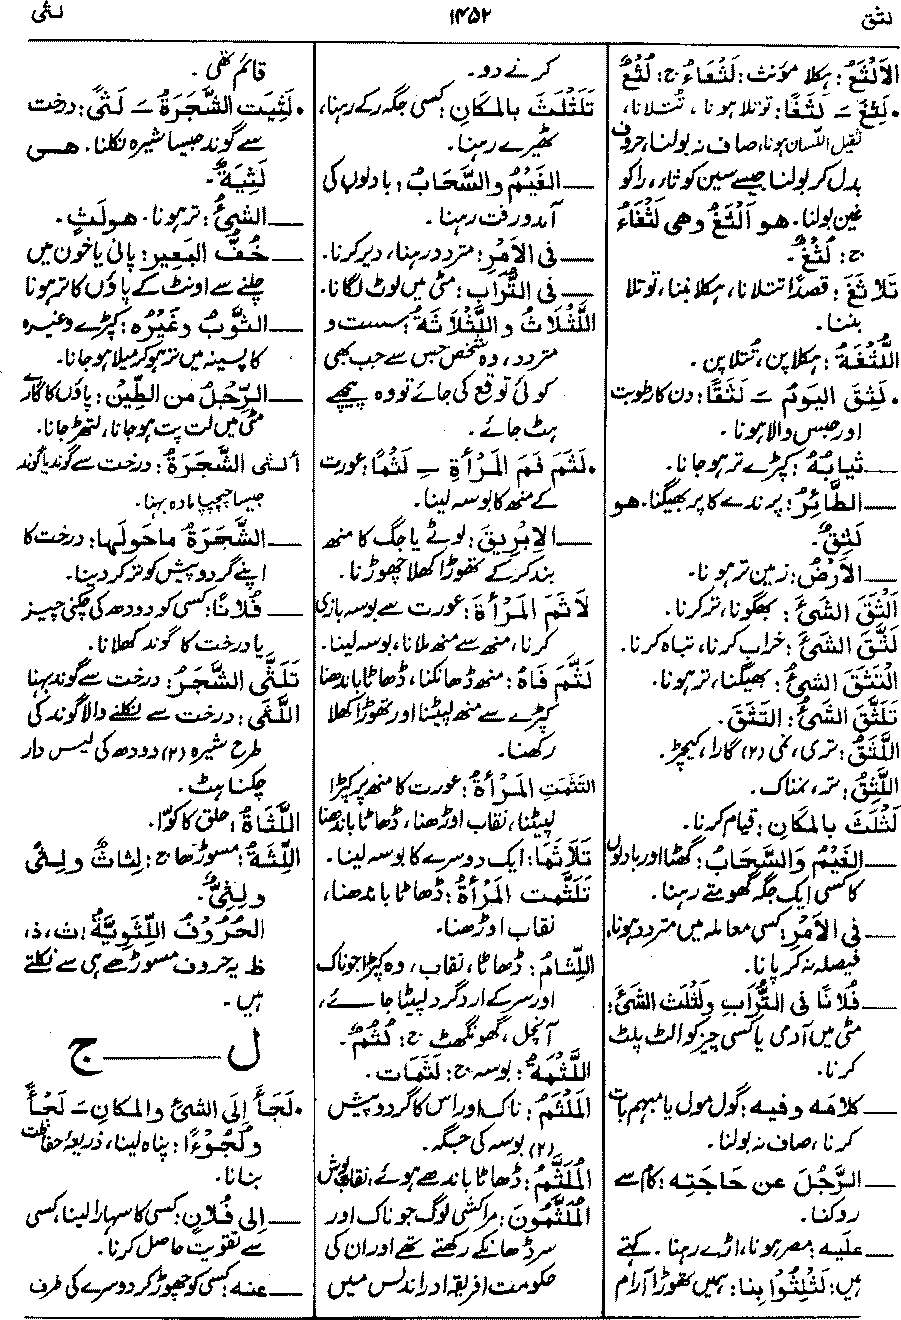 لثق
۱۴۵۲
لثی
الاَلْثَغُ: ہکلا مؤنث: لَثْغَاءُ ج: لُثْغٌ
• لَثِغَ ــَ لَثَغًا: توتلا ہونا، تتلانا،
ثقیل اللسان ہونا، صاف نہ بولنا، حروف
بدل کر بولنا جیسے سین کو ثار، را کو
غین بولنا۔ هو اَلْثَغُ وهی لَثْغَاءُ
ج: لُثْغٌ۔
تَلَاثَغَ: قصداً تتلانا، ہکلا بننا، توتلا
بننا۔
اللُّثْغَةُ: ہکلا پن، تتلا پن۔
• لَثِقَ الیَوْمُ ــَ لَثَقًا: دن کا رطوبت
اور حبس والا ہونا۔
ــــ ثیابُهُ: کپڑے تر ہو جانا۔
ــــ الطَّائِرُ: پرندے کا پر بھیگنا۔ هو
لَثِقٌ۔
ــــ الاَرْضُ: زمین تر ہونا۔
اَلْثَقَ الشیءَ: بھگونا، تر کرنا۔
لَثَّقَ الشیءَ: خراب کرنا، تباہ کرنا۔
اِلْتَثَقَ الشیءُ: بھیگنا، تر ہونا۔
تَلَثَّقَ الشیءُ: اِلتَثَقَ۔
اللَّثَقُ: تری، نمی (۲) گارا، کیچڑ۔
اللَّثِقُ: تر، نمناک۔
لَثْلَثَ بالمکانِ: قیام کرنا۔
ــــ الغَیْمُ وَالسَّحَابُ: گھٹا اور بادلوں
کا کسی ایک جگہ گھومتے رہنا۔
ــــ فی الاَمْرِ: کسی معاملہ میں متردد ہونا،
فیصلہ نہ کر پانا۔
ــــ فُلَانًا فی التُّرَابِ ولَثْلَثَ الشیءَ:
مٹی میں آدمی یا کسی چیز کو الٹ پلٹ
کرنا۔
ــــ کلامَه وفیه: گول مول یا مبہم بات
کرنا، صاف نہ بولنا۔
ــــ الرَّجُلَ عن حَاجَتِه: کام سے
روکنا۔
ــــ علَیه: مصر ہونا، اڑے رہنا۔ کہتے
ہیں: لَثْلِثُوا بِنا: ہمیں تھوڑا آرام
کرنے دو۔
تَلَثْلَثَ بالمکَانِ: کسی جگہ رکے رہنا،
ٹھیرے رہنا۔
ــــ الغَیْمُ والسَّحَابُ: بادلوں کی
آمدورفت رہنا۔
ــــ فی الاَمْرِ: متردد رہنا، دیر کرنا۔
ــــ فی التُّرَابِ: مٹی میں لوٹ لگانا۔
اللَّثْلَاثُ و اللَّثْلَاثَةُ: سست و
متردد، وہ شخص جس سے جب بھی
کوئی توقع کی جائے تو وہ پیچھے
ہٹ جائے۔
• لَثَمَ فَمَ المَرْأَةِ ــِ لَثْمًا: عورت
کے منھ کا بوسہ لینا۔
ــــ الاِبْرِیْقَ: لوٹے یا جگ کا منھ
بند کرکے تھوڑا کھلا چھوڑنا۔
لَاثَمَ المَرْأَةَ: عورت سے بوسہ بازی
کرنا، منھ سے منھ ملانا، بوسہ لینا۔
لَثَّمَ فَاهُ: منھ ڈھانکنا، ڈھاٹا باندھنا
کپڑے سے منھ لپیٹنا اور تھوڑا کھلا
رکھنا۔
اِلتَثَمَتِ المَرْأَةُ: عورت کا منھ پر کپڑا
لپیٹنا، نقاب اوڑھنا، ڈھاٹا باندھنا
تَلَاثَمَا: ایک دوسرے کا بوسہ لینا۔
تَلَثَّمت المَرْأَةُ: ڈھاٹا باندھنا،
نقاب اوڑھنا۔
اللِّثَامُ: ڈھاٹا، نقاب، وہ کپڑا جو ناک
اور سر کے ارد گرد لپیٹا جائے،
آنچل، گھونگھٹ ج: لُثُمٌ۔
اللَّثْمَةُ: بوسہ ج: لَثَمَات۔
المَلْثَمُ: ناک اور اس کا گرد و پیش
(۲) بوسہ کی جگہ۔
المُلَثَّمُ: ڈھاٹا باندھے ہوئے، نقاب پوش
المُلَثَّمُونَ: مراکشی لوگ جو ناک اور
سر ڈھانکے رکھتے تھے اور ان کی
حکومت افریقہ اور اندلس میں
قائم تھی۔
• لَثِیَت الشَّجَرَةُ ــَ لَثًی: درخت
سے گوند جیسا شیرہ نکلنا۔ هی
لَثِیَةٌ۔
ــــ الشیءُ: تر ہونا۔ هو لَثٍ۔
ــــ خُفُّ البَعِیرِ: پانی یا خون میں
چلنے سے اونٹ کے پاؤں کا تر ہونا
ــــ الثَّوْبُ وغَیْرُه: کپڑے وغیرہ
کا پسینہ میں تر ہو کر میلا ہو جانا۔
ــــ الرِّجْلُ من الطِّیْنِ: پاؤں کا گارے
مٹی میں لت پت ہو جانا، لتھڑ جانا۔
اَلْثَی الشَّجَرَةُ: درخت سے گوند یا گوند
جیسا چپچپا مادہ بہنا۔
ــــ الشَّجَرَةُ ماحَولَها: درخت کا
اپنے گرد و پیش کو تر کر دینا۔
ــــ فُلَانًا: کسی کو دودھ کی چکنی چیز
یا درخت کا گوند کھلانا۔
تَلَثَّی الشَّجَرُ: درخت سے گوند بہنا
اللَّثَی: درخت سے نکلنے والا گوند کی
طرح شیرہ (۲) دودھ کی لیس دار
چکناہٹ۔
اللَّثَاةُ: حلق کا کوّا۔
اللِّثَةُ: مسوڑھا ج: لِثاتٌ ولِثًی
ولِثِیٌّ۔
الحُرُوْفُ اللِّثَوِیَّةُ: ث، ذ،
ظ یہ حروف مسوڑھے ہی سے نکلتے
ہیں۔
ل ــــــ ج
• لَجَأَ إلَی الشیءِ والمکانِ ــَ لَجْأً
ولُجُوْءًا: پناہ لینا، ذریعۂ حفاظت
بنانا۔
ــــ إلی فُلَانٍ: کسی کا سہارا لینا، کسی
سے تقویت حاصل کرنا۔
ــــ عنه: کسی کو چھوڑ کر دوسرے کی طرف